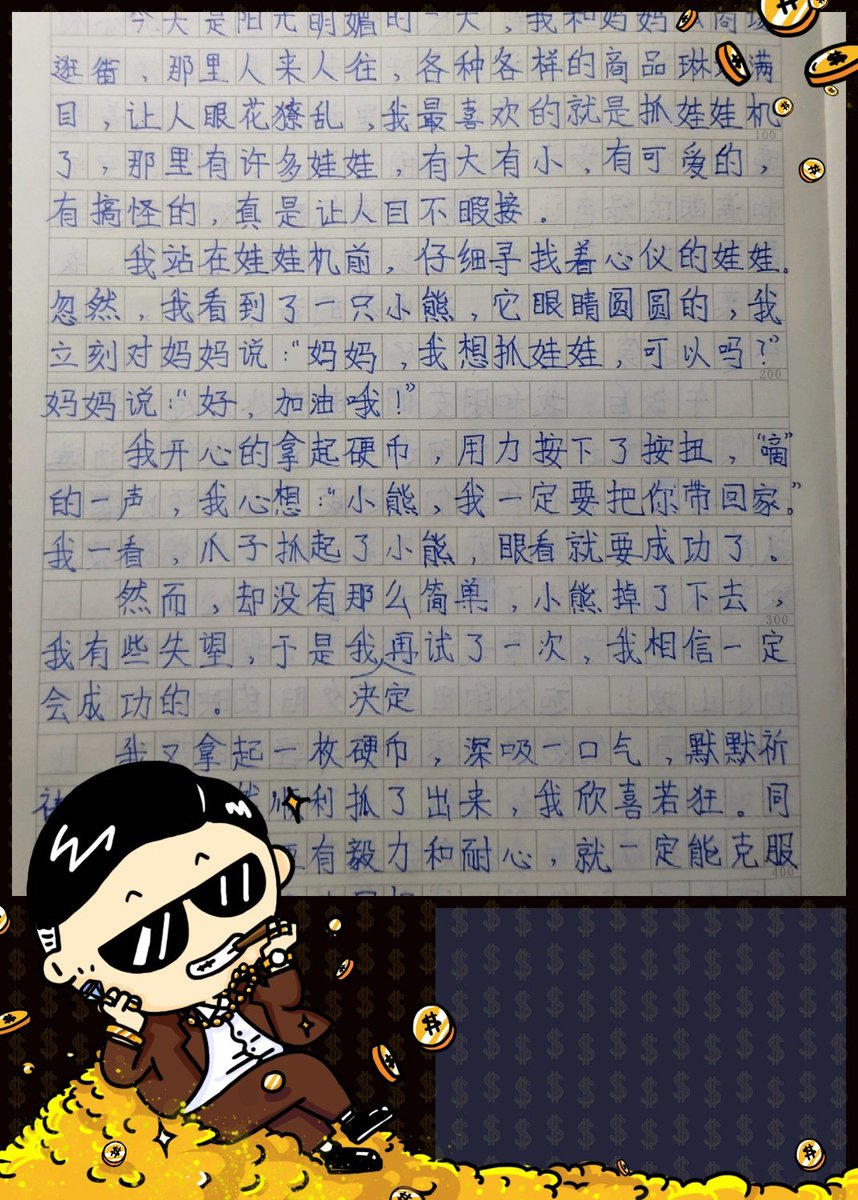 今天是阳光明媚的一天，我和妈妈
逛街，那里人来人往，各种各样的商品琳 满
目，让人眼花獠乱，我最喜欢的就是抓娃娃机
100
了，那里有许多娃娃，有大有小，有可爱的，
有搞怪的，真是让人目不暇接。
我站在娃娃机前，仔细寻找着心仪的娃娃。
忽然，我看到了一只小熊，它眼睛圆圆的，我
立刻对妈妈说：“妈妈，我想抓娃娃，可以吗？”
200
妈妈说：“好，加油哦！”
我开心的拿起硬币，用力按下了按扭，“嘀”
的一声，我心想：“小熊，我一定要把你带回家。”
我一看，爪子抓起了小熊，眼看就要成功了。
然而，却没有那么简单，小熊掉了下去，
300
我有些失望，于是我再试了一次，我相信一定
决定
会成功的。
我又拿起一枚硬币，深吸一口气，默默祈
顺利抓了出来，我欣喜若狂。同
有毅力和耐心，就一定能克服
400